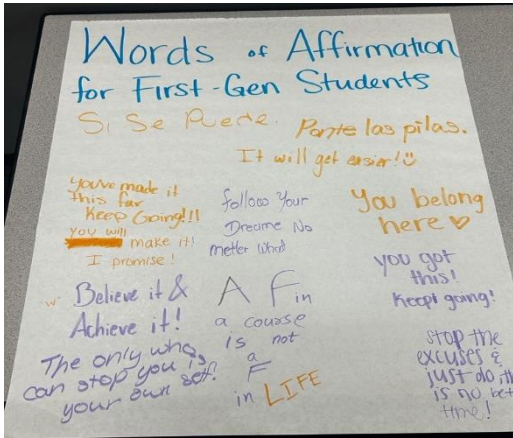 Words of Affirmation
for First-Gen Students
Si Se Puede.
Ponte las pilas.
It will get easier!
you've made it
this far
Keep Going!!!
you will
make it!
I promise!
follow Your
Dreams No
metter what
You belong
here
you got
this!
Keept going!
Believe it &
Achieve it!
A F in
a course
is not
a
F
in LIFE
The only who
can stop you is
your own self!
stop the
excuses &
just do it
is no
time!